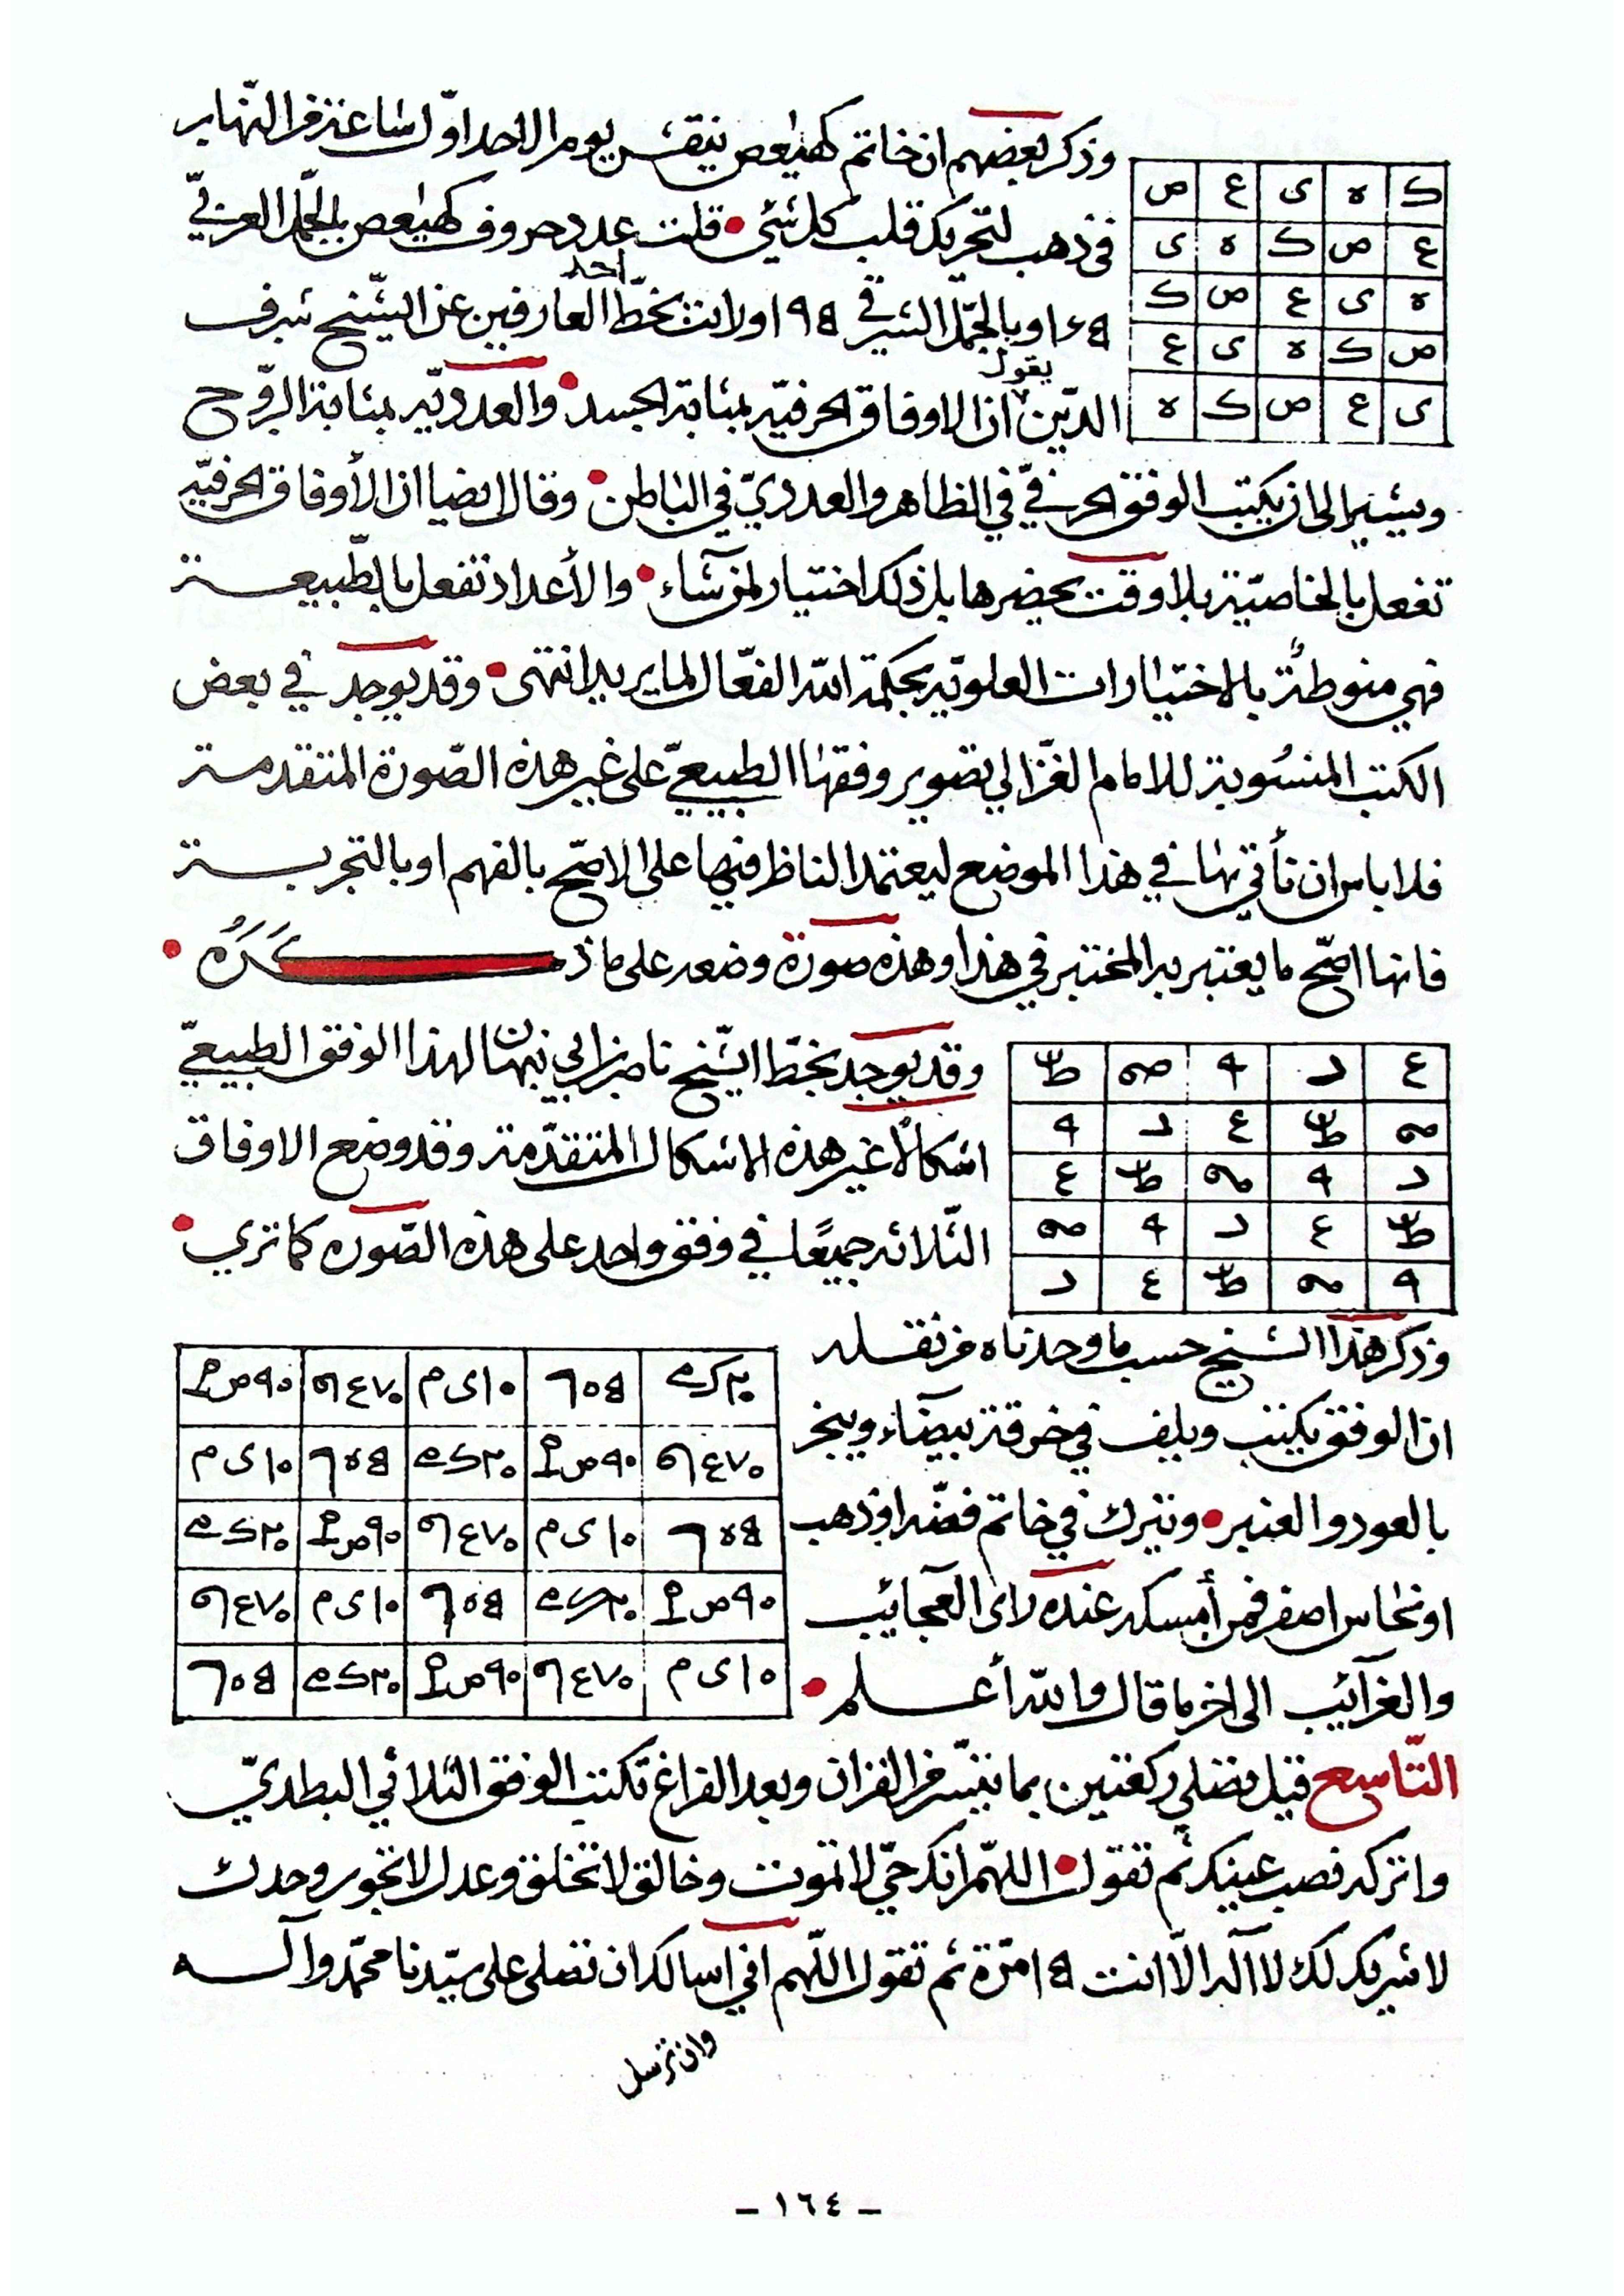 وذكر بعضهم ان خاتم كهيعص ينقش يوم الاحد اوّل ساعة من النّهار
ك ه ى ع ص
في ذهب لتحريك قلب كل شئي • قلت عدد حروف كهيعص بالجمّل الغربيّ
ع ص ك ه ى
وبالجمّل الشرقي ١٩٥ اولانت بخطّ احد العارفين عن الشّيخ شرف
ه ى ع ص ك
ص ك ه ى ع
الدّين يقول ان الاوفاق الحرفيّه بمثابة الجسد • والعدديّه بمثابة الرّوح
ى ع ص ك ه
ويشير الى ان يكتب الوفق الحرفيّ في الظاهر والعدديّ في الباطن • وقال ايضا ان الأوفاق الحرفيّه
تفعل بالخاصيّة بلا وقت يحضرها بل ذلك اختيار لمن شاء • والأعداد تفعل بالطّبيعة
فهي منوطة بالاختيارات العلويّه بحكمة الله الفعّال لما يريد انتهى • وقد يوجد في بعض
الكتب المنسوبة للامام الغزّالي تصوير وفقها الطبيعيّ على غير هذه الصّورة المتقدمة
فلا باس ان نأتي بها في هذا الموضع ليعتمد الناظر فيها على الاصّح بالفهم او بالتجربة
فانها اصّح ما يعتبر به المختبر في هذا وهذه صورة وضعه على ما ذكره •
وقد يوجد بخطّ الشّيخ ناصر ابن ابي نبهان لهذا الوفق الطبيعيّ
اشكالًا غير هذه الاشكال المتقدّمة وقد وضع الاوفاق
الثّلاثه جميعًا في وفق واحد على هذه الصّوره كما تري •
وذكر هذا الشيخ حسب ما وجدناه من نقله
ان الوفق يكتب ويلف في خرقة بيضاء ويبخر
بالعود والعنبر • ويترك في خاتم فضّه او ذهب
او نحاس اصفر فمن أمسكه عنده رأى العجايب
والغرآئيب الى اخر ما قال والله أعلم •
التّاسع قيل تصلي ركعتين بما تيسّر من القران وبعد الفراغ تكتب الوفق الثلاثي البطديّ
واتركه نصب عينيك ثم تقول • اللهّم انك حيّ لا تموت وخالق لا تخلق وعدل لا تجور وحدك
لا شريك لك لا آله الاّ انت ١٥ مرّة ثم تقول اللّهم اني اسالك ان تصلي على سيّدنا محمّد وآله
وان ترسل
- ١٦٤ -